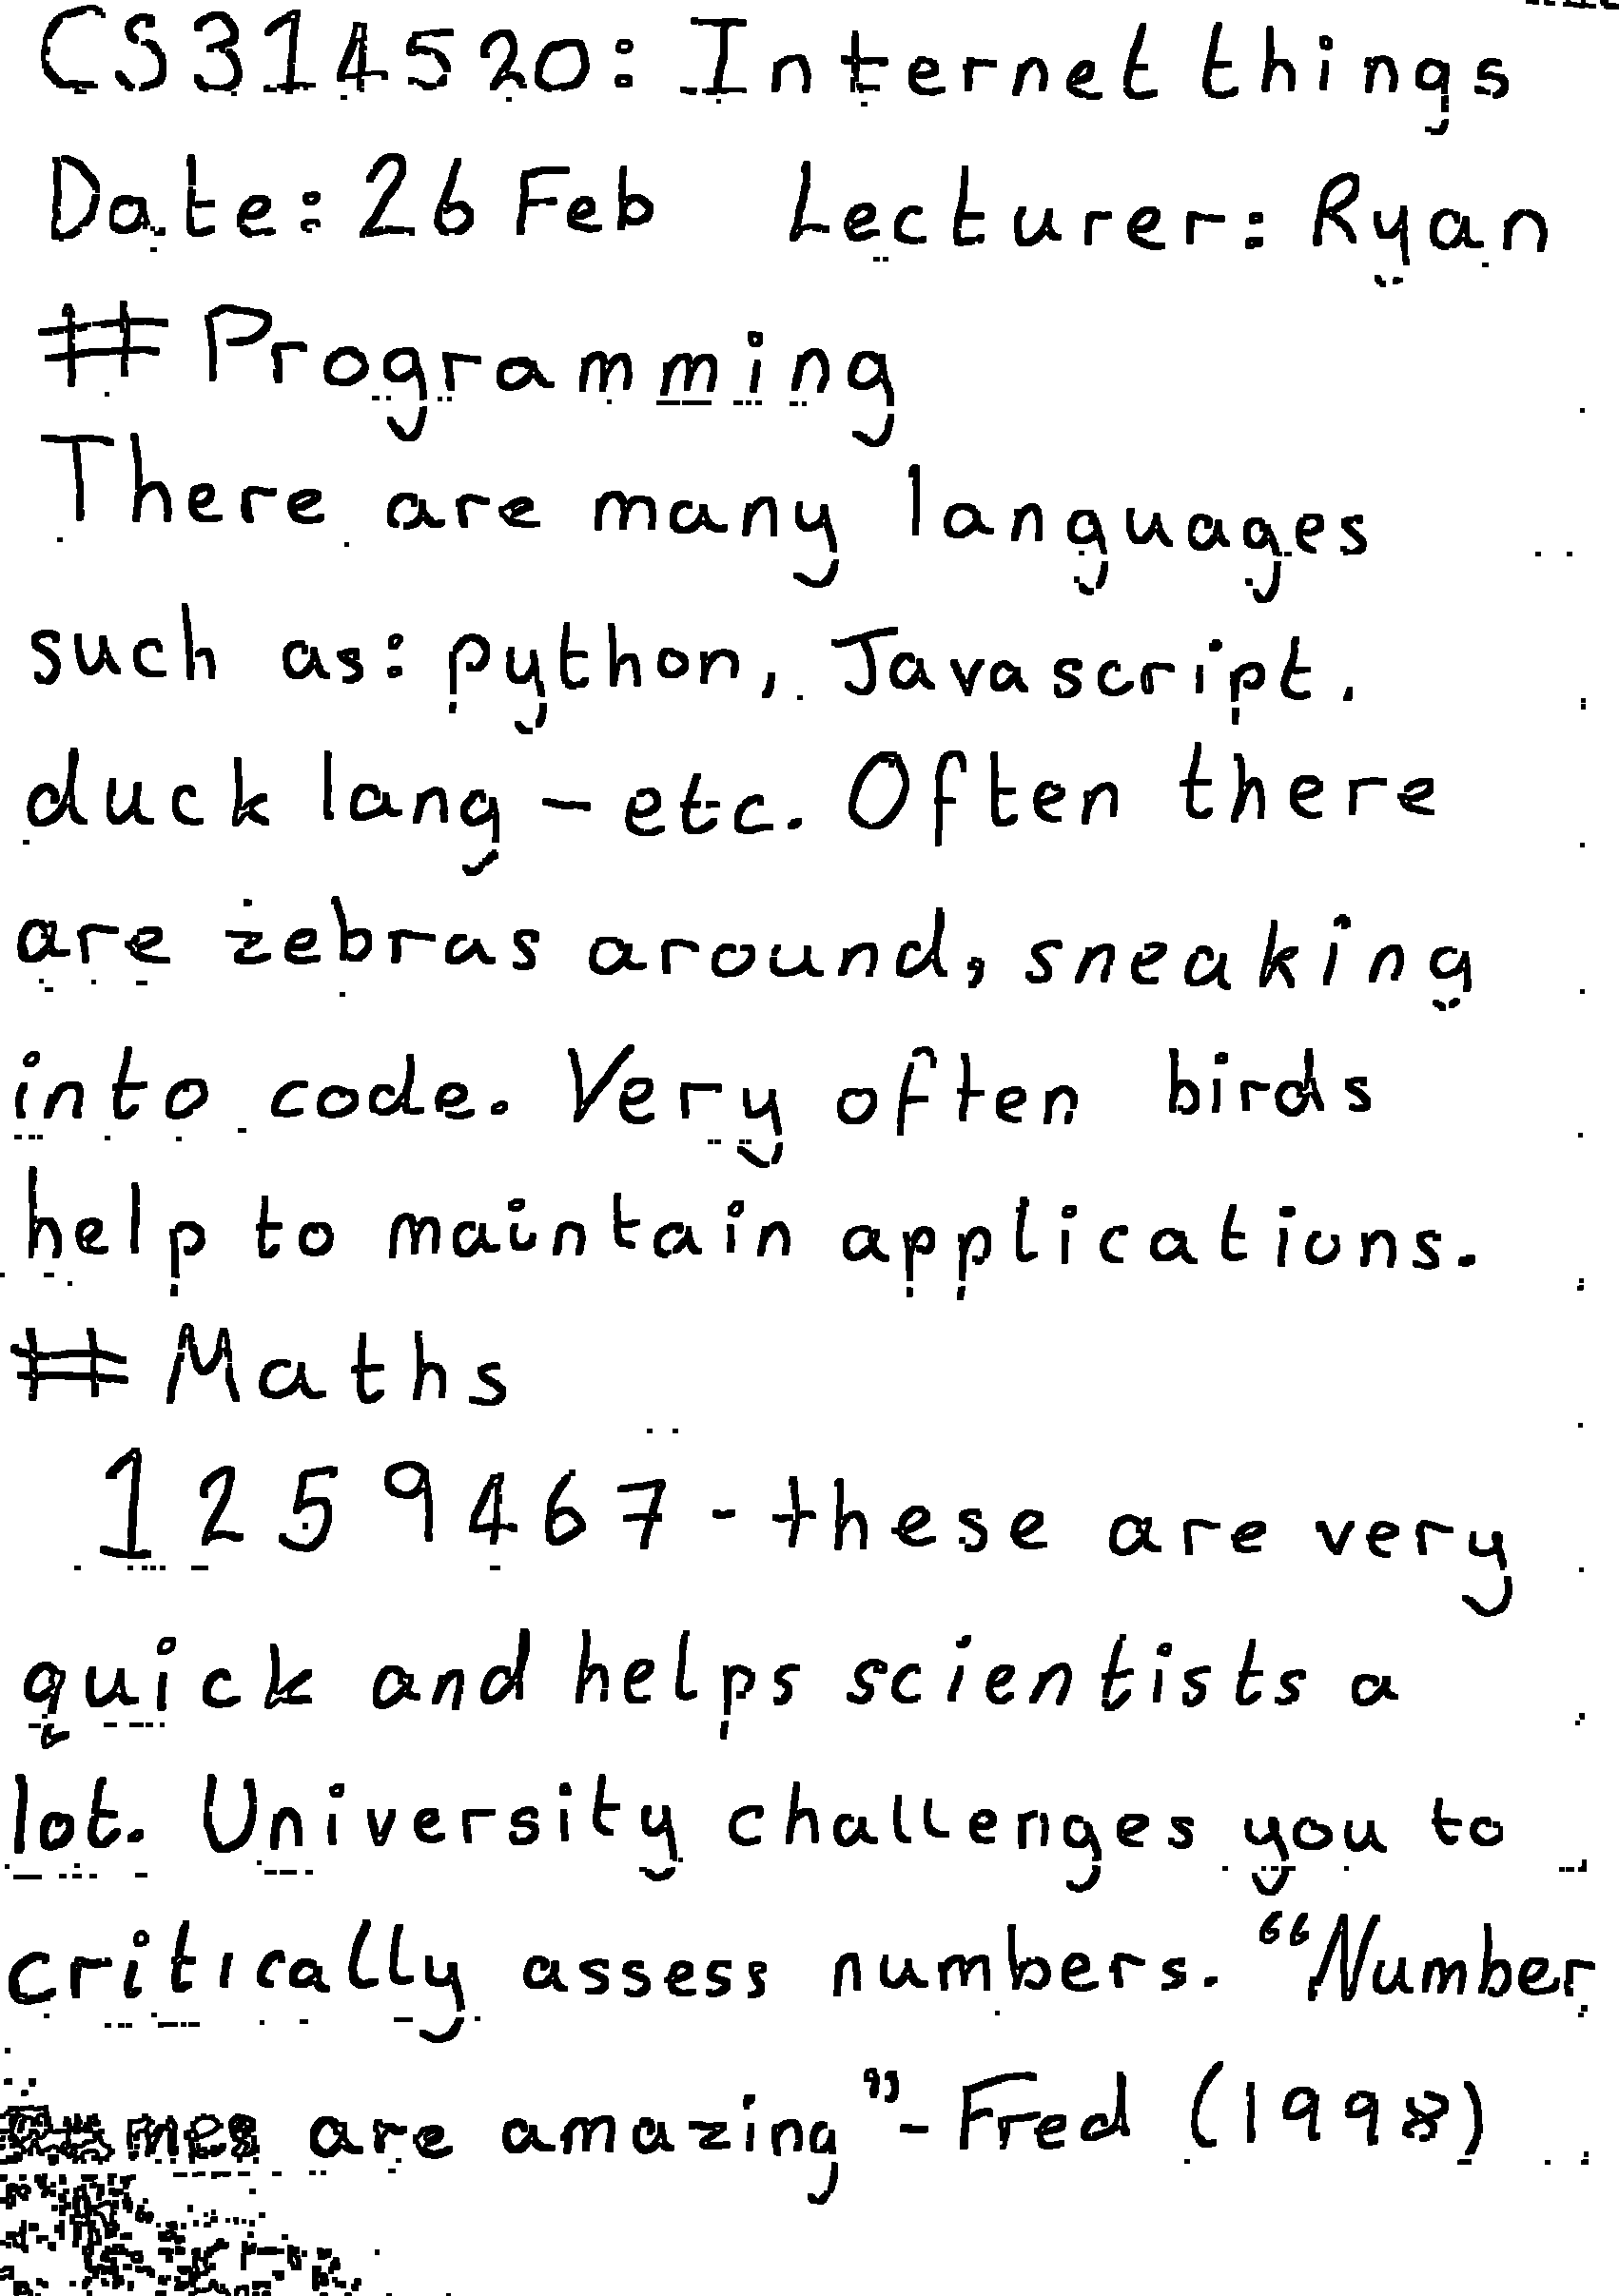 CS314520: Internet things
Date: 26 Feb Lecturer: Ryan
# Programming
There are many languages
such as: python, Javascript.
duck lang - etc. Often there
are zebras around, sneaking
into code. Very often birds
help to maintain applications.
# Maths
1259467 - these are very
quick and helps scientists a
lot. University challenges you to
critically assess numbers. “Number
are amazing” - Fred (1998)